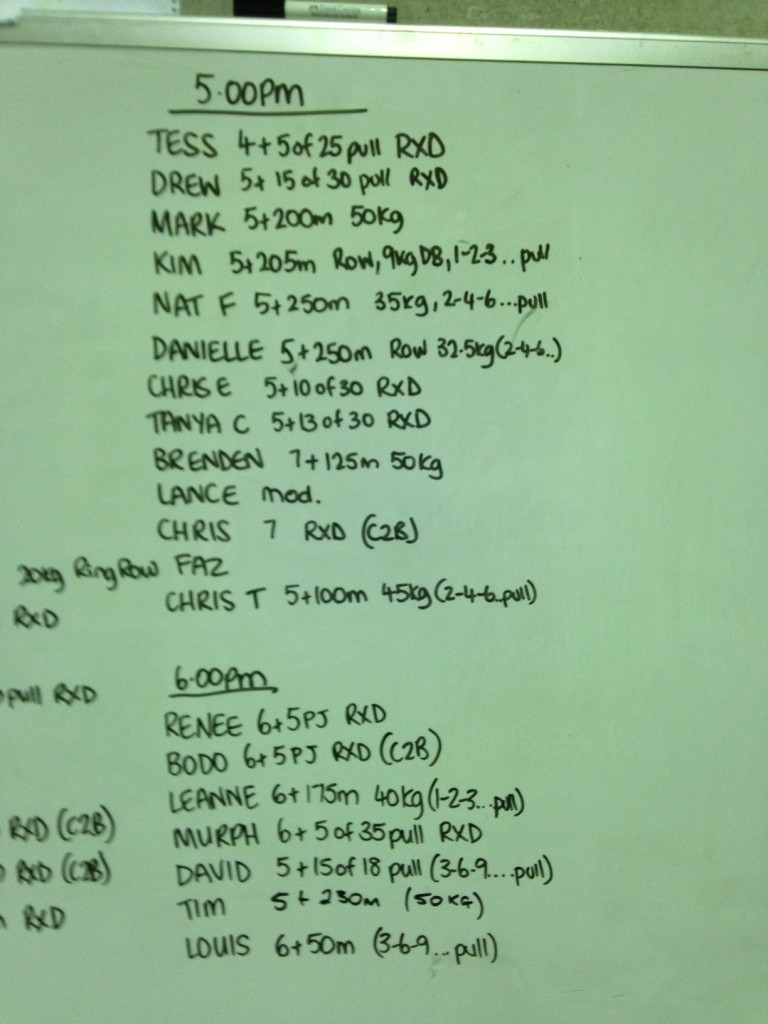 5.00pm
TESS 4+5 of 25 pull RXD
DREW 5+ 15 of 30 pull RXD
MARK 5+200m 50kg
KIM 5+205m Row, 9kg DB, 1-2-3.. pull
NAT F 5+250m 35kg, 2-4-6...pull
DANIELLE 5+250m Row 32.5kg (2-4-6..)
CHRIS E 5+10 of 30 RXD
TANYA C 5+13 of 30 RXD
BRENDEN 7+125m 50kg
LANCE mod.
CHRIS 7 RXD (C2B)
20kg Ring Row FAZ
CHRIS T 5+100m 45kg (2-4-6..pull)
RXD
6.00pm
pull RXD
RENEE 6+5PJ RXD
BODO 6+5PJ RXD (C2B)
LEANNE 6+175m 40kg (1-2-3...pull)
RXD (C2B)
MURPH 6+5 of 35 pull RXD
RXD (C2B)
DAVID 5+15 of 18 pull (3-6-9....pull)
RXD
TIM 5+230m (50KG)
LOUIS 6+50m (3-6-9...pull)